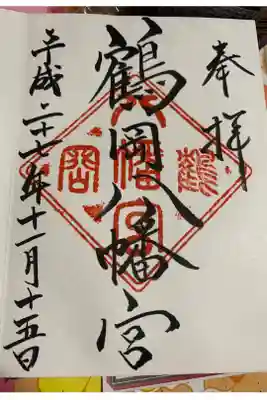 奉拝
鶴岡八幡宮
平成二十七年十一月十五日
鶴岡八幡宮